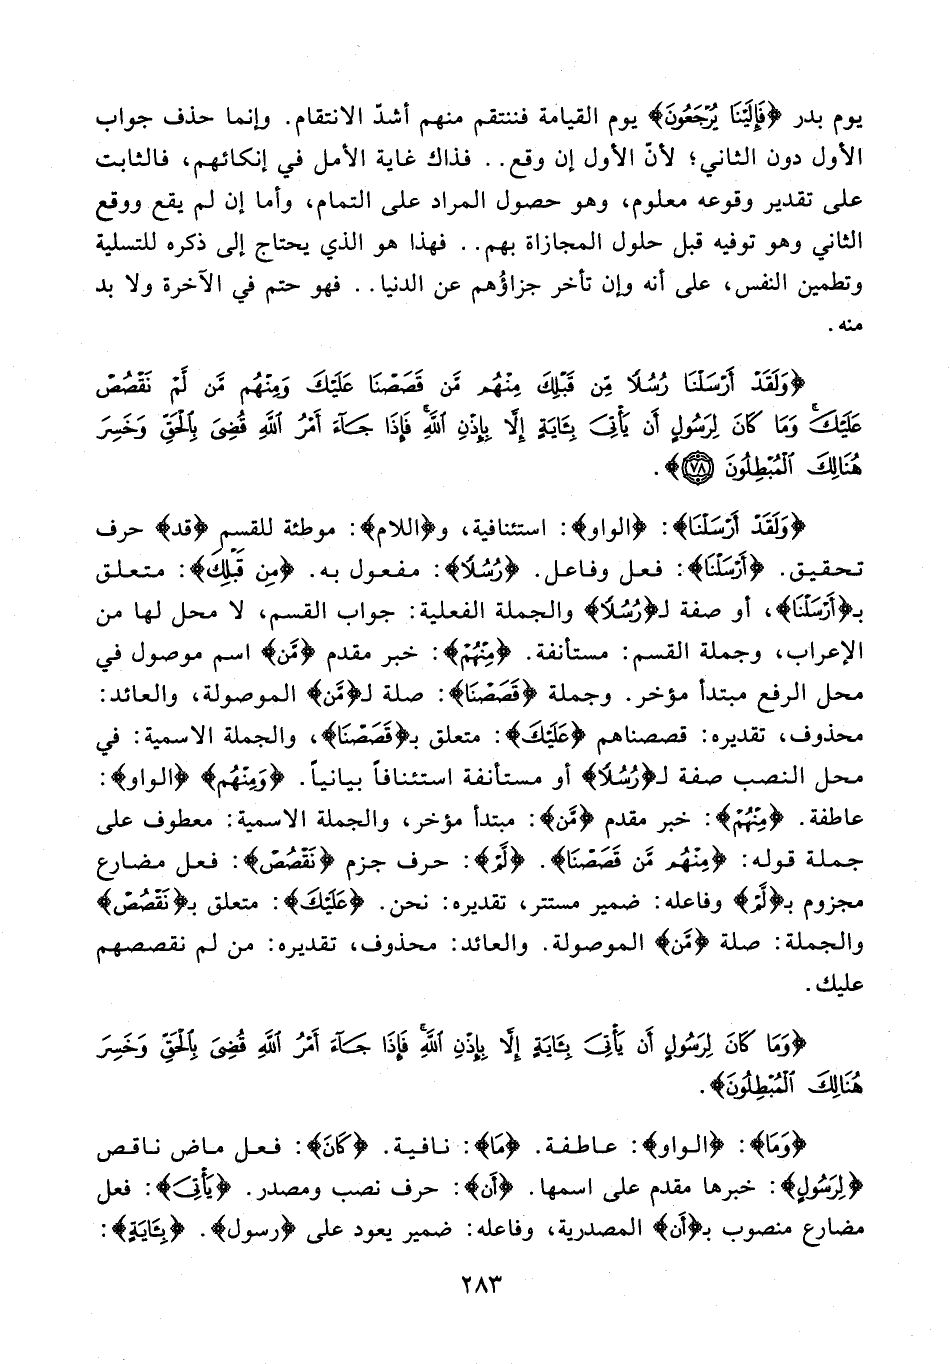 يوم بدر ﴿فَإِلَيْنَا يُرْجَعُونَ﴾ يوم القيامة فننتقم منهم أشدّ الانتقام. وإنما حذف جواب
الأول دون الثاني؛ لأنّ الأول إن وقع.. فذاك غاية الأمل في إنكائهم، فالثابت
على تقدير وقوعه معلوم، وهو حصول المراد على التمام، وأما إن لم يقع ووقع
الثاني وهو توفيه قبل حلول المجازاة بهم.. فهذا هو الذي يحتاج إلى ذكره للتسلية
وتطمين النفس، على أنه وإن تأخر جزاؤُهم عن الدنيا.. فهو حتم في الآخرة ولا بد
منه.
﴿وَلَقَدْ أَرْسَلْنَا رُسُلًا مِّن قَبْلِكَ مِنْهُم مَّن قَصَصْنَا عَلَيْكَ وَمِنْهُم مَّن لَّمْ نَقْصُصْ
عَلَيْكَ ۗ وَمَا كَانَ لِرَسُولٍ أَن يَأْتِىَ بِـَٔايَةٍ إِلَّا بِإِذْنِ ٱللَّهِ ۚ فَإِذَا جَآءَ أَمْرُ ٱللَّهِ قُضِىَ بِٱلْحَقِّ وَخَسِرَ
هُنَالِكَ ٱلْمُبْطِلُونَ ٧٨﴾.
﴿وَلَقَدْ أَرْسَلْنَا﴾: ﴿الواو﴾: استئنافية، و﴿اللام﴾: موطئة للقسم ﴿قد﴾ حرف
تحقيق. ﴿أَرْسَلْنَا﴾: فعل وفاعل. ﴿رُسُلًا﴾: مفعول به. ﴿مِن قَبْلِكَ﴾: متعلق
بـ﴿أَرْسَلْنَا﴾، أو صفة لـ﴿رُسُلًا﴾ والجملة الفعلية: جواب القسم، لا محل لها من
الإعراب، وجملة القسم: مستأنفة. ﴿مِنْهُمْ﴾: خبر مقدم ﴿مَّن﴾ اسم موصول في
محل الرفع مبتدأ مؤخر. وجملة ﴿قَصَصْنَا﴾: صلة لـ﴿مَّن﴾ الموصولة، والعائد:
محذوف، تقديره: قصصناهم ﴿عَلَيْكَ﴾: متعلق بـ﴿قَصَصْنَا﴾، والجملة الاسمية: في
محل النصب صفة لـ﴿رُسُلًا﴾ أو مستأنفة استئنافاً بيانياً. ﴿وَمِنْهُم﴾ ﴿الواو﴾:
عاطفة. ﴿مِنْهُمْ﴾: خبر مقدم ﴿مَّن﴾: مبتدأ مؤخر، والجملة الاسمية: معطوف على
جملة قوله: ﴿مِنْهُم مَّن قَصَصْنَا﴾. ﴿لَّمْ﴾: حرف جزم ﴿نَقْصُصْ﴾: فعل مضارع
مجزوم بـ﴿لَّمْ﴾ وفاعله: ضمير مستتر، تقديره: نحن. ﴿عَلَيْكَ﴾: متعلق بـ﴿نَقْصُصْ﴾
والجملة: صلة ﴿مَّن﴾ الموصولة. والعائد: محذوف، تقديره: من لم نقصصهم
عليك.
﴿وَمَا كَانَ لِرَسُولٍ أَن يَأْتِىَ بِـَٔايَةٍ إِلَّا بِإِذْنِ ٱللَّهِ ۚ فَإِذَا جَآءَ أَمْرُ ٱللَّهِ قُضِىَ بِٱلْحَقِّ وَخَسِرَ
هُنَالِكَ ٱلْمُبْطِلُونَ﴾.
﴿وَمَا﴾: ﴿الواو﴾: عاطفة. ﴿مَا﴾: نافية. ﴿كَانَ﴾: فعل ماض ناقص
﴿لِرَسُولٍ﴾: خبرها مقدم على اسمها. ﴿أَن﴾: حرف نصب ومصدر. ﴿يَأْتِىَ﴾: فعل
مضارع منصوب بـ﴿أَن﴾ المصدرية، وفاعله: ضمير يعود على ﴿رسول﴾. ﴿بِـَٔايَةٍ﴾:
٢٨٣